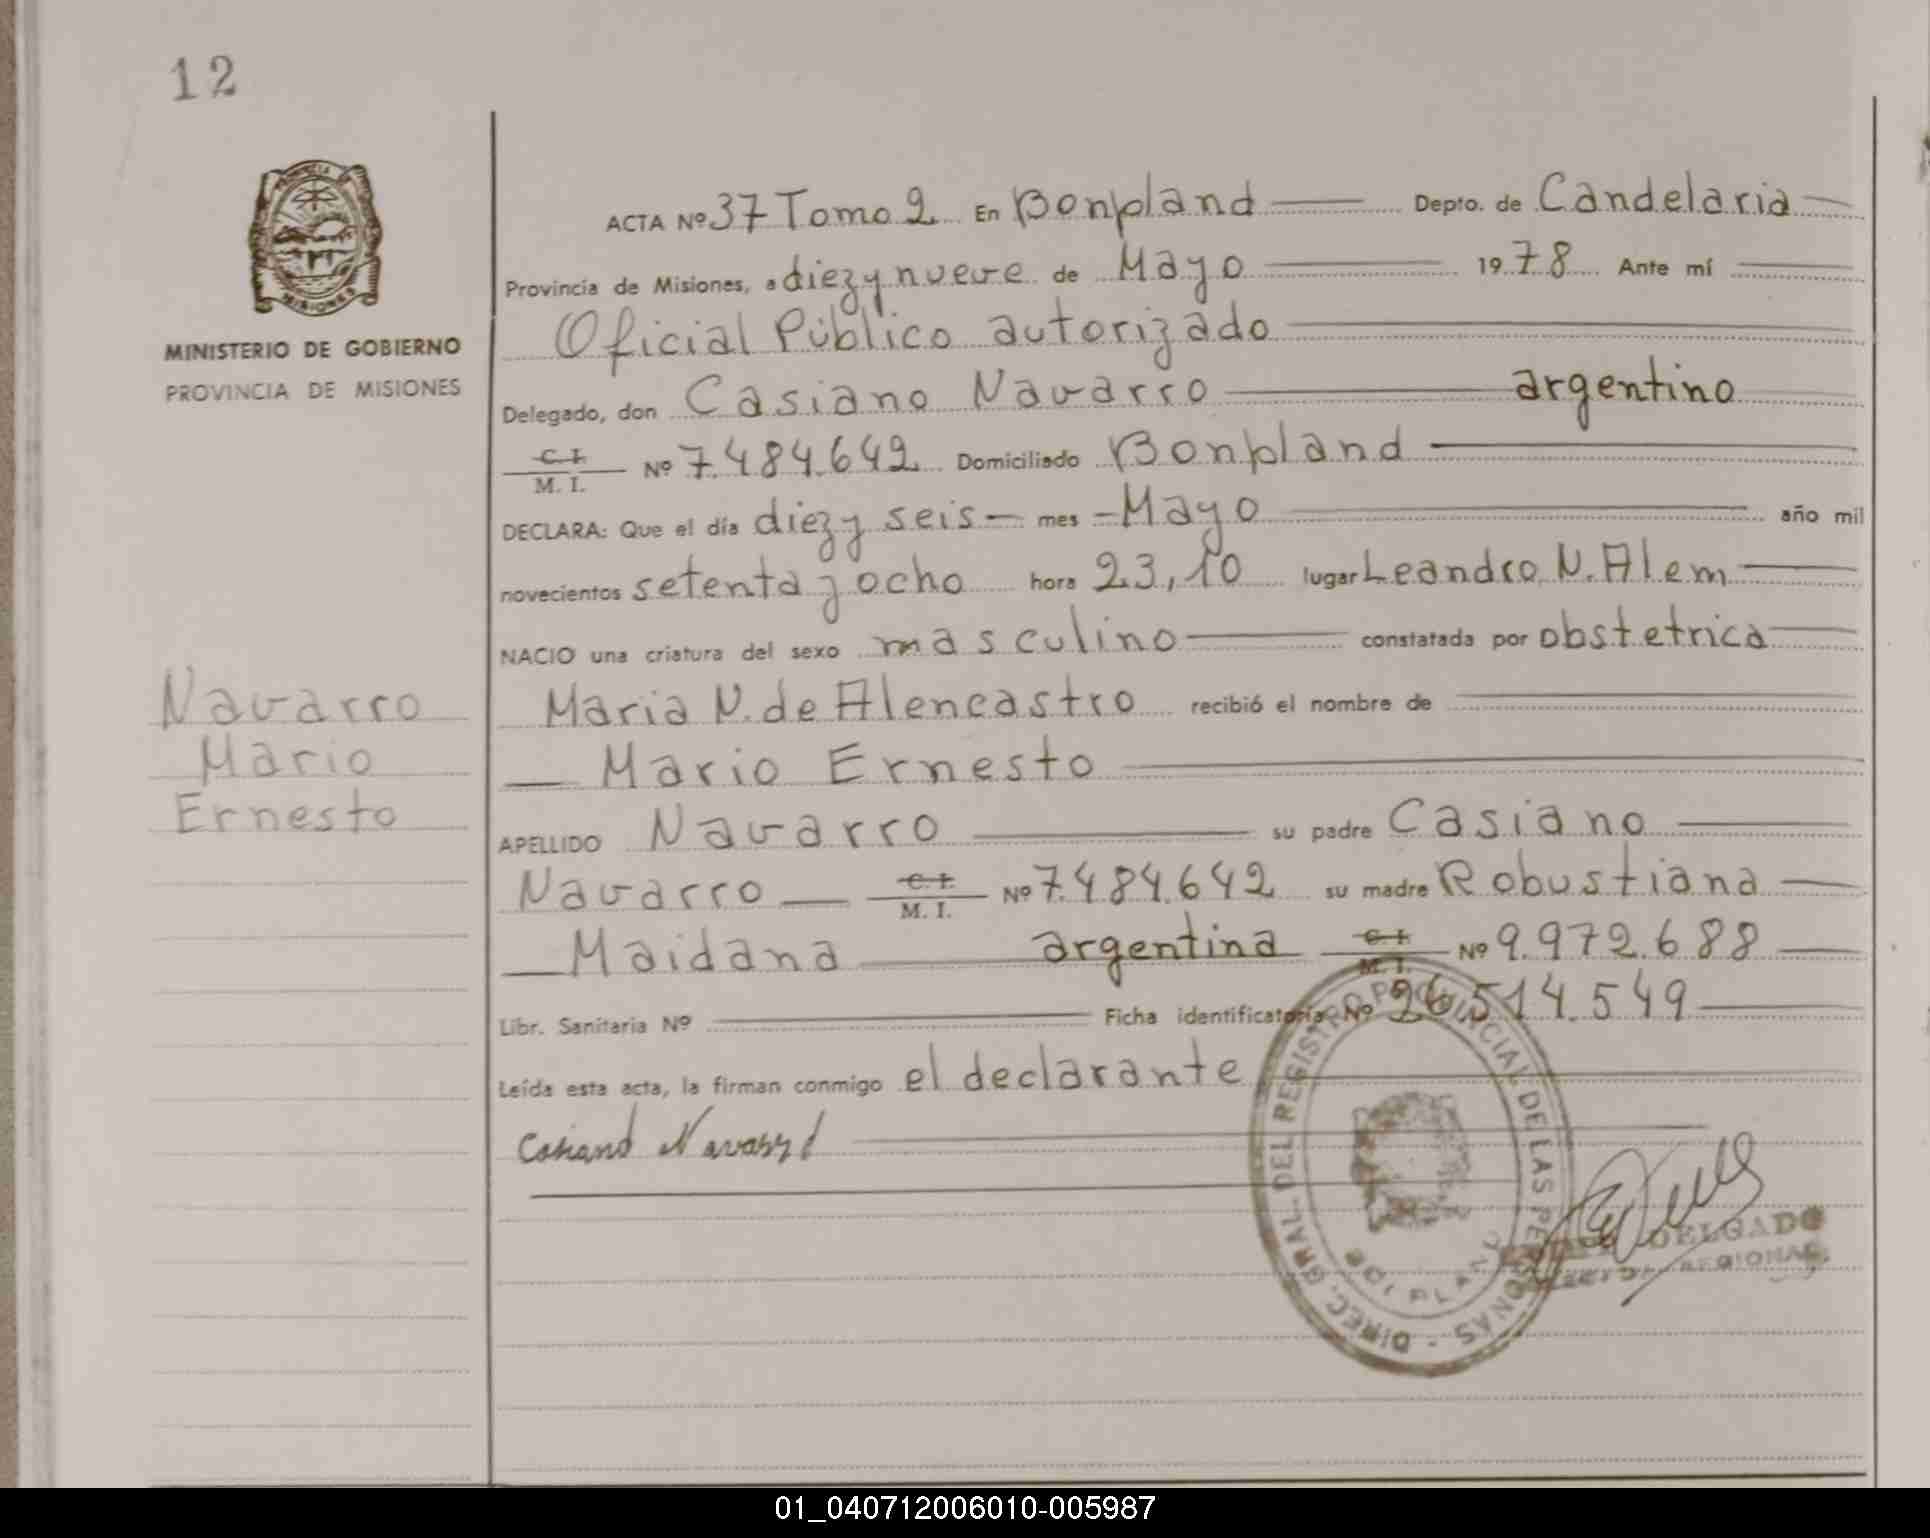 12
PROVINCIA DE
MISIONES
MINISTERIO DE GOBIERNO
PROVINCIA DE MISIONES
Navarro
Mario
Ernesto
ACTA Nº 37 Tomo 2 En Bonpland Depto. de Candelaria
Provincia de Misiones, a diez y nueve de Mayo 1978 Ante mí
Oficial Público autorizado
Delegado, don Casiano Navarro argentino
C. I.
M. I. Nº 7.484.642 Domiciliado Bonpland
DECLARA: Que el día diez y seis mes Mayo año mil
novecientos setenta y ocho hora 23,10 lugar Leandro N. Alem
NACIO una criatura del sexo masculino constatada por obstetrica
Maria N. de Alencastro recibió el nombre de
Mario Ernesto
APELLIDO Navarro su padre Casiano
Navarro C. I. M. I. Nº 7.484.642 su madre Robustiana
Maidana argentina C. I. M. I. Nº 9.972.688
Libr. Sanitaria Nº Ficha identificatoria Nº 26.514.549
Leída esta acta, la firman conmigo el declarante
Casiano Navarro
DIREC. GRAL. DEL REGISTRO PROVINCIAL DE LAS PERSONAS
BONPLAND
DELGADO
REGIONAL
01_040712006010-005987